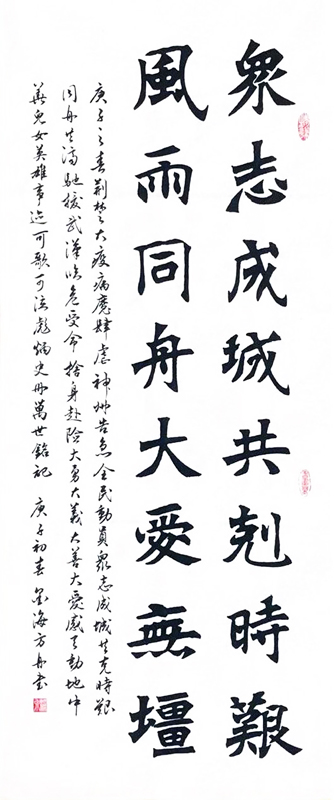 衆志成城共剋時艱
風雨同舟大愛無壃
庚子之春荊楚大疫病魔肆虐神州告急全民動員衆志成城共克時艱
同舟共濟馳援武漢臨危受命捨身赴險大勇大義大善大愛感天動地中
華兒女英雄事迹可歌可泣彪炳史册萬世銘記 庚子初春 墨海方舟書